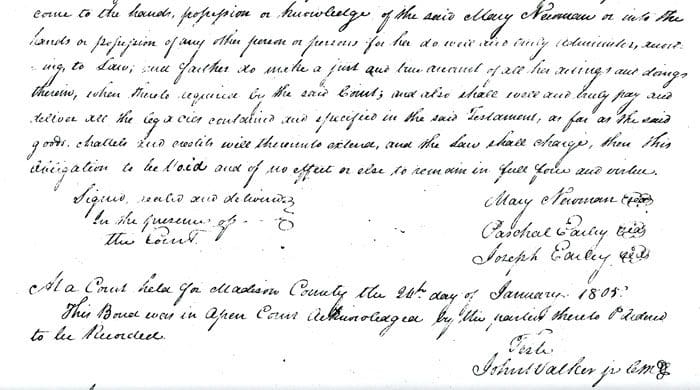 come to the hands, possession or knowledge of the said Mary Newman or into the
hands or possession of any other person or persons for her do well and truly administer, accord
ing, to Law; and further do make a just and true account of all her actings and doings
therein, when thereto required by the said Court; and also shall well and truly pay and
deliver all the legacies contained and specified in the said Testament, as far as the said
goods. chattels and credits will thereunto extend, and the Law shall charge, then this
obligation to be Void and of no effect or else to remain in full force and virtue.
Signed, sealed and delivered
In the presence of - - -
the Court.
Mary Newman
Paschal Earley
Joseph Earley
At a Court held for Madison County the 24th day of January 1805.
This Bond was in Open Court Acknowledged by the parties thereto & Ordered
to be Recorded
Teste
John Walker jr